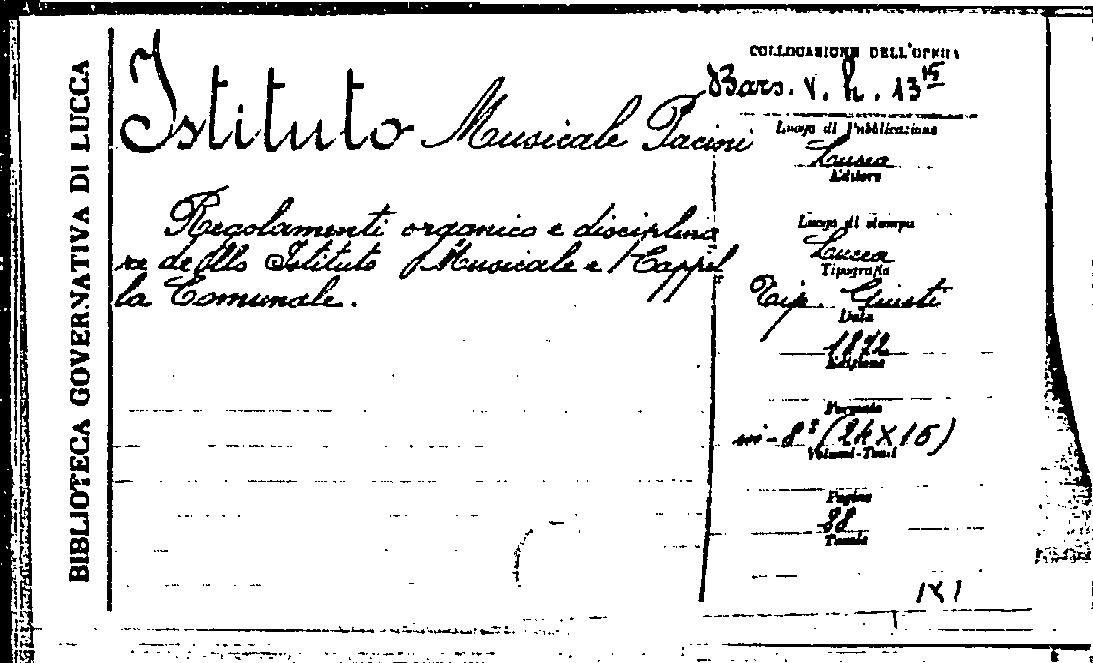 BIBLIOTECA GOVERNATIVA DI LUCCA
Istituto Musicale Pacini
Regolamenti organico e disciplina
re dello Istituto Musicale e Cappel
la Comunale.
COLLOCAZIONE DELL'OPERA
Bars. V. h. 13¹⁵
Luogo di Pubblicazione
Lucca
Editore
Luogo di stampa
Lucca
Tipografia
Tip. Giusti
Data
1872
Edizione
Formato
in-8° (24X15)
Volumi-Tomi
Pagine
Tavole